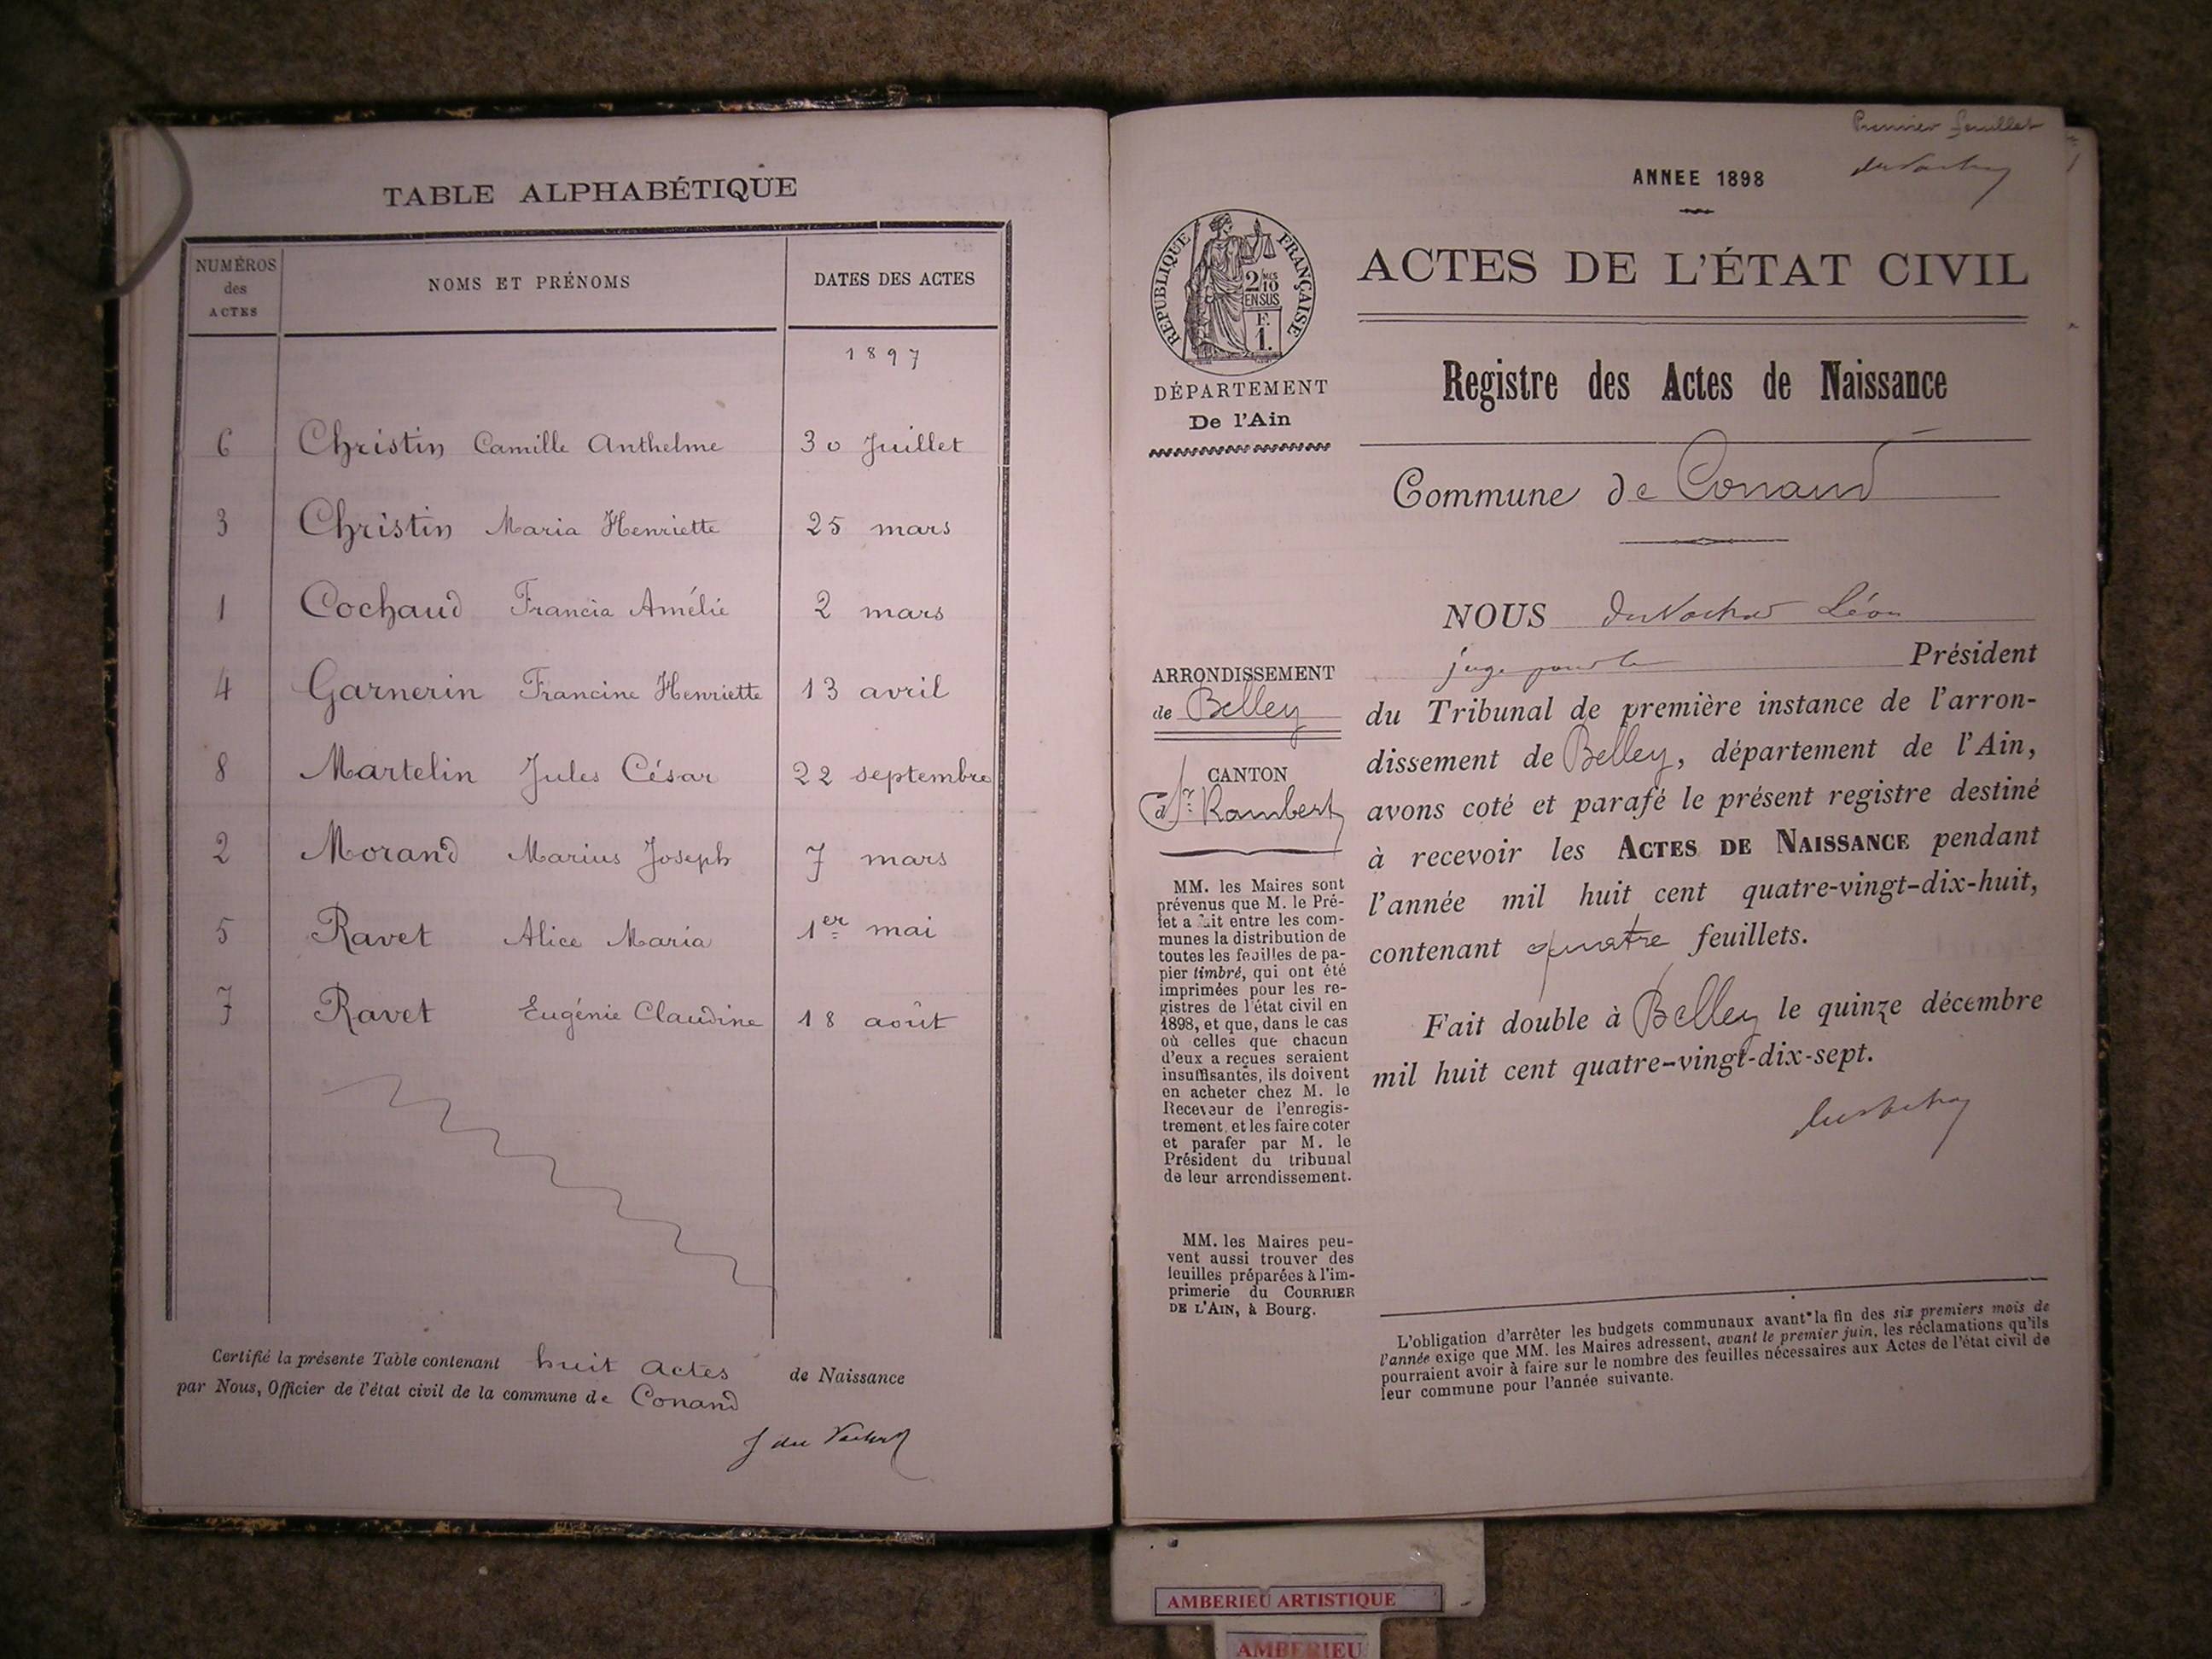 TABLE ALPHABÉTIQUE
NUMÉROS des ACTES
NOMS ET PRÉNOMS
DATES DES ACTES
1897
6 Christin Camille Anthelme 30 Juillet
3 Christin Maria Henriette 25 mars
1 Cochaud Francia Amélie 2 mars
4 Garnerin Francine Henriette 13 avril
8 Martelin Jules César 22 septembre
2 Morand Marius Joseph 7 mars
5 Ravet Alice Maria 1er mai
7 Ravet Eugénie Claudine 18 août
Certifié la présente Table contenant huit actes de Naissance
par Nous, Officier de l'état civil de la commune de Conand
Premier feuillet
ANNEE 1898
RÉPUBLIQUE FRANÇAISE
2/10 MES
EN SUS
F.
1.
DÉPARTEMENT
De l'Ain
ARRONDISSEMENT
de Belley
CANTON
St Rambert
MM. les Maires sont
prévenus que M. le Pré-
fet a fait entre les com-
munes la distribution de
toutes les feuilles de pa-
pier timbré, qui ont été
imprimées pour les re-
gistres de l'état civil en
1898, et que, dans le cas
où celles que chacun
d'eux a reçues seraient
insuffisantes, ils doivent
en acheter chez M. le
Receveur de l'enregis-
trement, et les faire coter
et parafer par M. le
Président du tribunal
de leur arrondissement.
MM. les Maires peu-
vent aussi trouver des
feuilles préparées à l'im-
primerie du COURRIER
DE L'AIN, à Bourg.
ACTES DE L'ÉTAT CIVIL
Registre des Actes de Naissance
Commune de Conand
NOUS Léon
juge pour le Président
du Tribunal de première instance de l'arron-
dissement de Belley, département de l'Ain,
avons coté et parafé le présent registre destiné
à recevoir les ACTES DE NAISSANCE pendant
l'année mil huit cent quatre-vingt-dix-huit,
contenant quatre feuillets.
Fait double à Belley le quinze décembre
mil huit cent quatre-vingt-dix-sept.
L'obligation d'arrêter les budgets communaux avant la fin des six premiers mois de
l'année exige que MM. les Maires adressent, avant le premier juin, les réclamations qu'ils
pourraient avoir à faire sur le nombre des feuilles nécessaires aux Actes de l'état civil de
leur commune pour l'année suivante.
AMBERIEU ARTISTIQUE
AMBERIEU